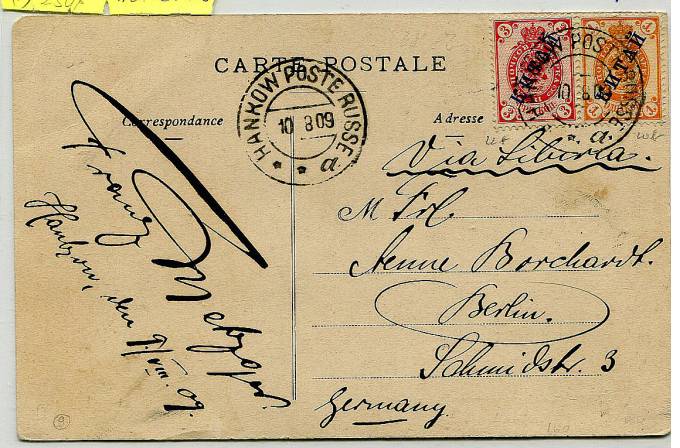 CARTE POSTALE
Correspondance
Adresse
HANKOW POSTE RUSSE
10 8 09
a.
3 3
КИТАЙ
3 3
1 1
КИТАЙ
1 1
10 8
a.
Via Siberia.
M Frl
Aenne Borchardt.
Berlin.
Schmidstr. 3
Germany.
Franz Metzger
Hankow, den 9/VIII. 09.